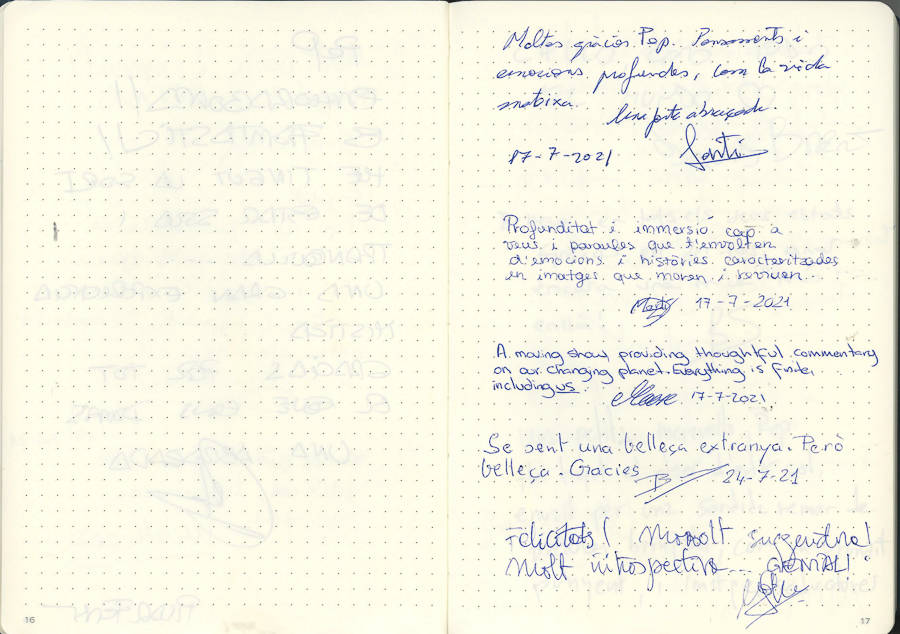 Moltes gràcies Pep. Pensaments i
emocions profundes, com la vida
mateixa.
Una forta abraçada.
17-7-2021 Santi
Profunditat i immersió cap a
veus i paraules que t'envolten
d'emocions i històries caracteritzades
en imatges que moren i
17-7-2021
A moving show, providing thoughtful commentary
on our changing planet. Everything is finite,
including us.
17-7-2021
Se sent una bellega extranya. Però
bellega. Gràcies
24-7-21
Felicitats! Moooolt suggeridora!
Molt introspectiva... GENIAL!
16
17